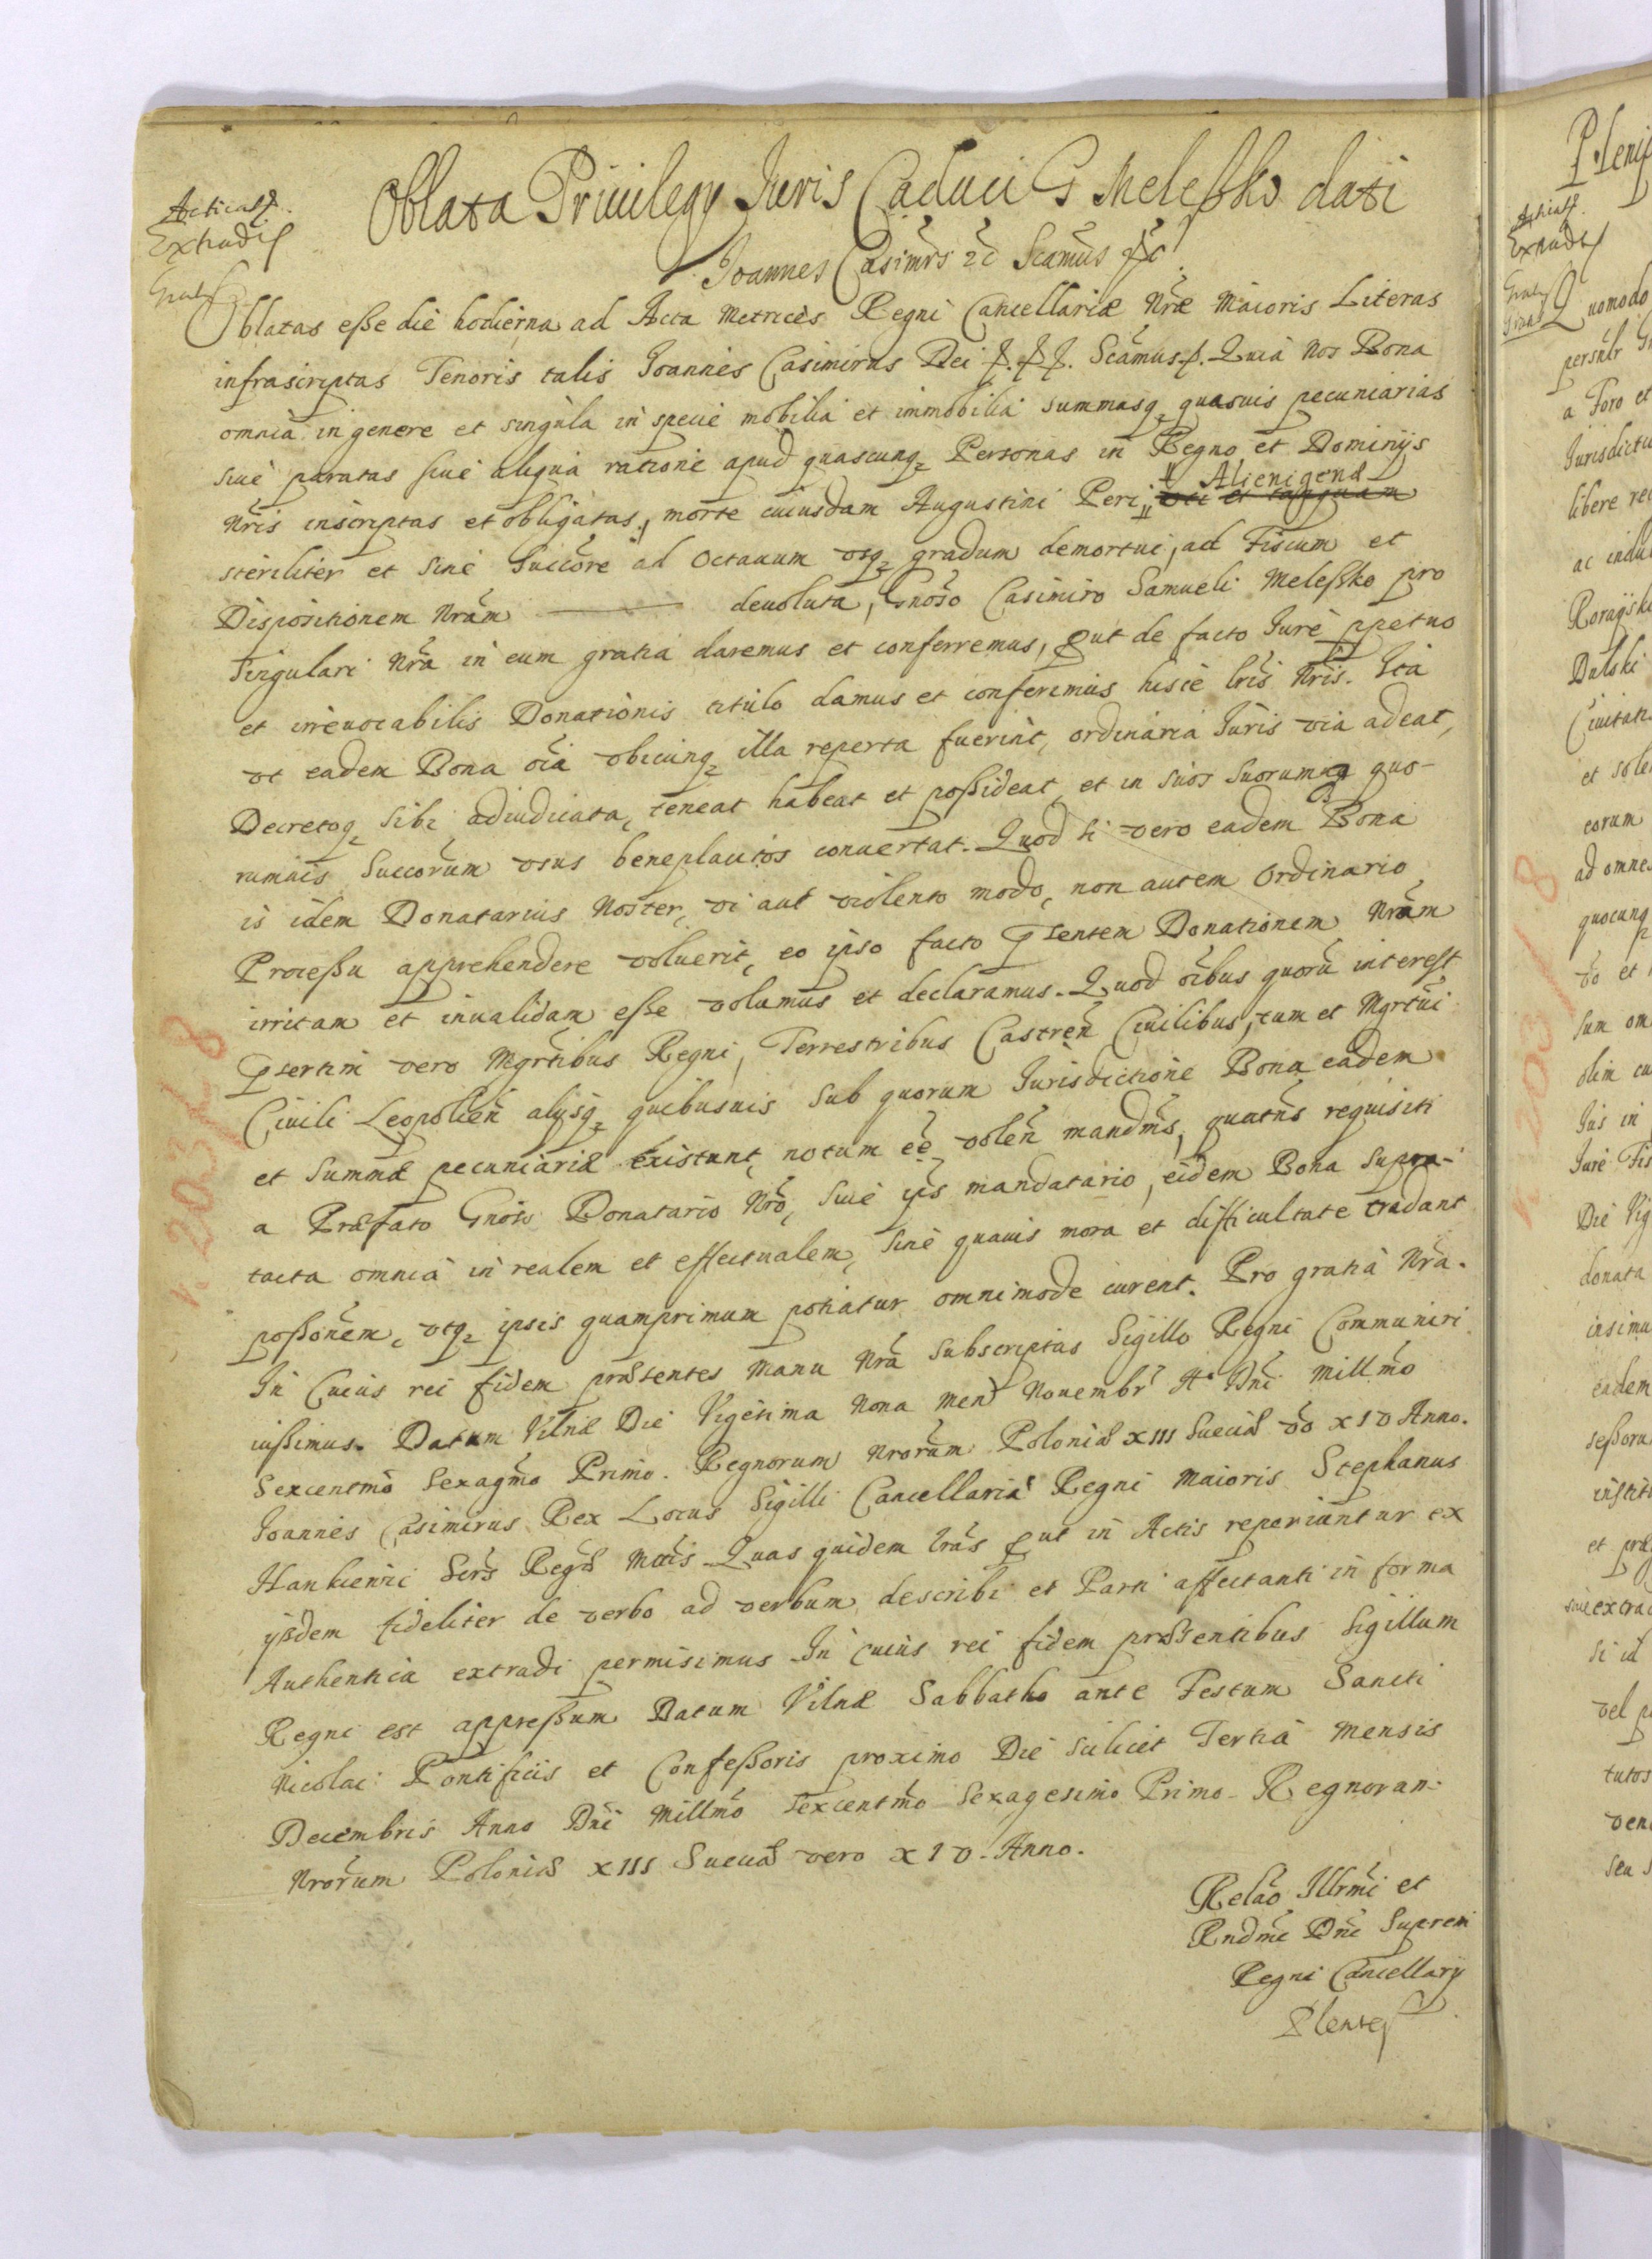 Oblata Priuilegy Iuris Caduci G Meleßko dati
Acticat
Extradit
Joannes Casimrs &c Scamus &c
Oblatas eße die hodierna ad Acta Metrices Regni Cancellariæ Nræ Maioris Literas
infrascriptas Tenoris talis Joannes Casimirus Dei Scamus. Quia Nos Bona
omnia in genere et singula in specie mobilia et immobilia summasq₂ quasuis pecuniarias
siue paratas siue aliqua ratione apud quascunq₂ Personas in Regno et Dominijs
Alienigenæ
Nris inscriptas et obligatas, morte cuiusdam Augustini Peri, oti et tanquam
steriliter et sine Succore ad Octauum vsq₂ gradum demortui, ad Fiscum et
Dispositionem Nram ——— deuoluta, Gnoso Casimiro Samueli Meleßko pro
Singulari Nra in eum gratia daremus et conferremus, put de facto Iure ppetuo
et irreuocabilis Donationis titulo damus et conferimus hisce lris Nris. Ita
vt eadem Bona oia vbicunq₂ illa reperta fuerint, ordinaria Iuris via adeat,
Decretoq₂ sibi adiudicata, teneat habeat et poßideat, et in suos suorumq₂ quo-
rumuis Succorum vsus beneplacitos conuertat. Quod si vero eadem Bona
is idem Donatarius Noster, vi aut violento modo, non autem Ordinario
Proceßu apprehendere voluerit, eo ipso facto psentem Donationem Nram
irritam et inualidam eße volumus et declaramus. Quod oibus quoru interest
psertim vero Mgrtibus Regni, Terrestribus Castren Ciuilibus, tum et Mgrtui
Ciuili Leopolien alijsq₂ quibusuis sub quorum Iurisdictione Bona eadem
et Summæ pecuniariæ existunt, notum ee volen mandms, quatns requisiti
a Præfato Gnoso Donatario Nro, siue ips mandatario, eidem Bona supra-
tacta omnia in realem et effectualem, sine quauis mora et difficultate tradant
poßonem, vtq₂ ipsis quamprimum potiatur omnimode curent. Pro gratia Nra.
In Cuius rei fidem præsentes Manu Nra Subscriptas Sigillo Regni Communiri
iußimus. Datum Vilnæ Die Vigesima Nona Men Nouembr Aº Dni Millmo
Sexcentmo Sexagmo Primo. Regnorum Nrorum Poloniæ XIII Sueciæ vo XIV Anno.
Joannes Casimirus Rex Locus Sigilli Cancellariæ Regni Maioris Stephanus
Hankiewic Sers Regæ Mtis Quas quidem lras put in Actis reperiuntur ex
ijsdem fideliter de verbo ad verbum describi et Parti affectanti in forma
Authentica extradi permisimus In cuius rei fidem præsentibus Sigillum
Regni est appreßum Datum Vilnæ Sabbatho ante Festum Sancti
Nicolai Pontificis et Confeßoris proximo Die scilicet Tertia Mensis
Decembris Anno Dni Millmo Sexcentmo Sexagesimo Primo Regnorum
Nrorum Poloniæ XIII Sueciæ vero XIV. Anno.
Relao Illrmi et
Rndmi Dni Supremi
Regni Cancellary